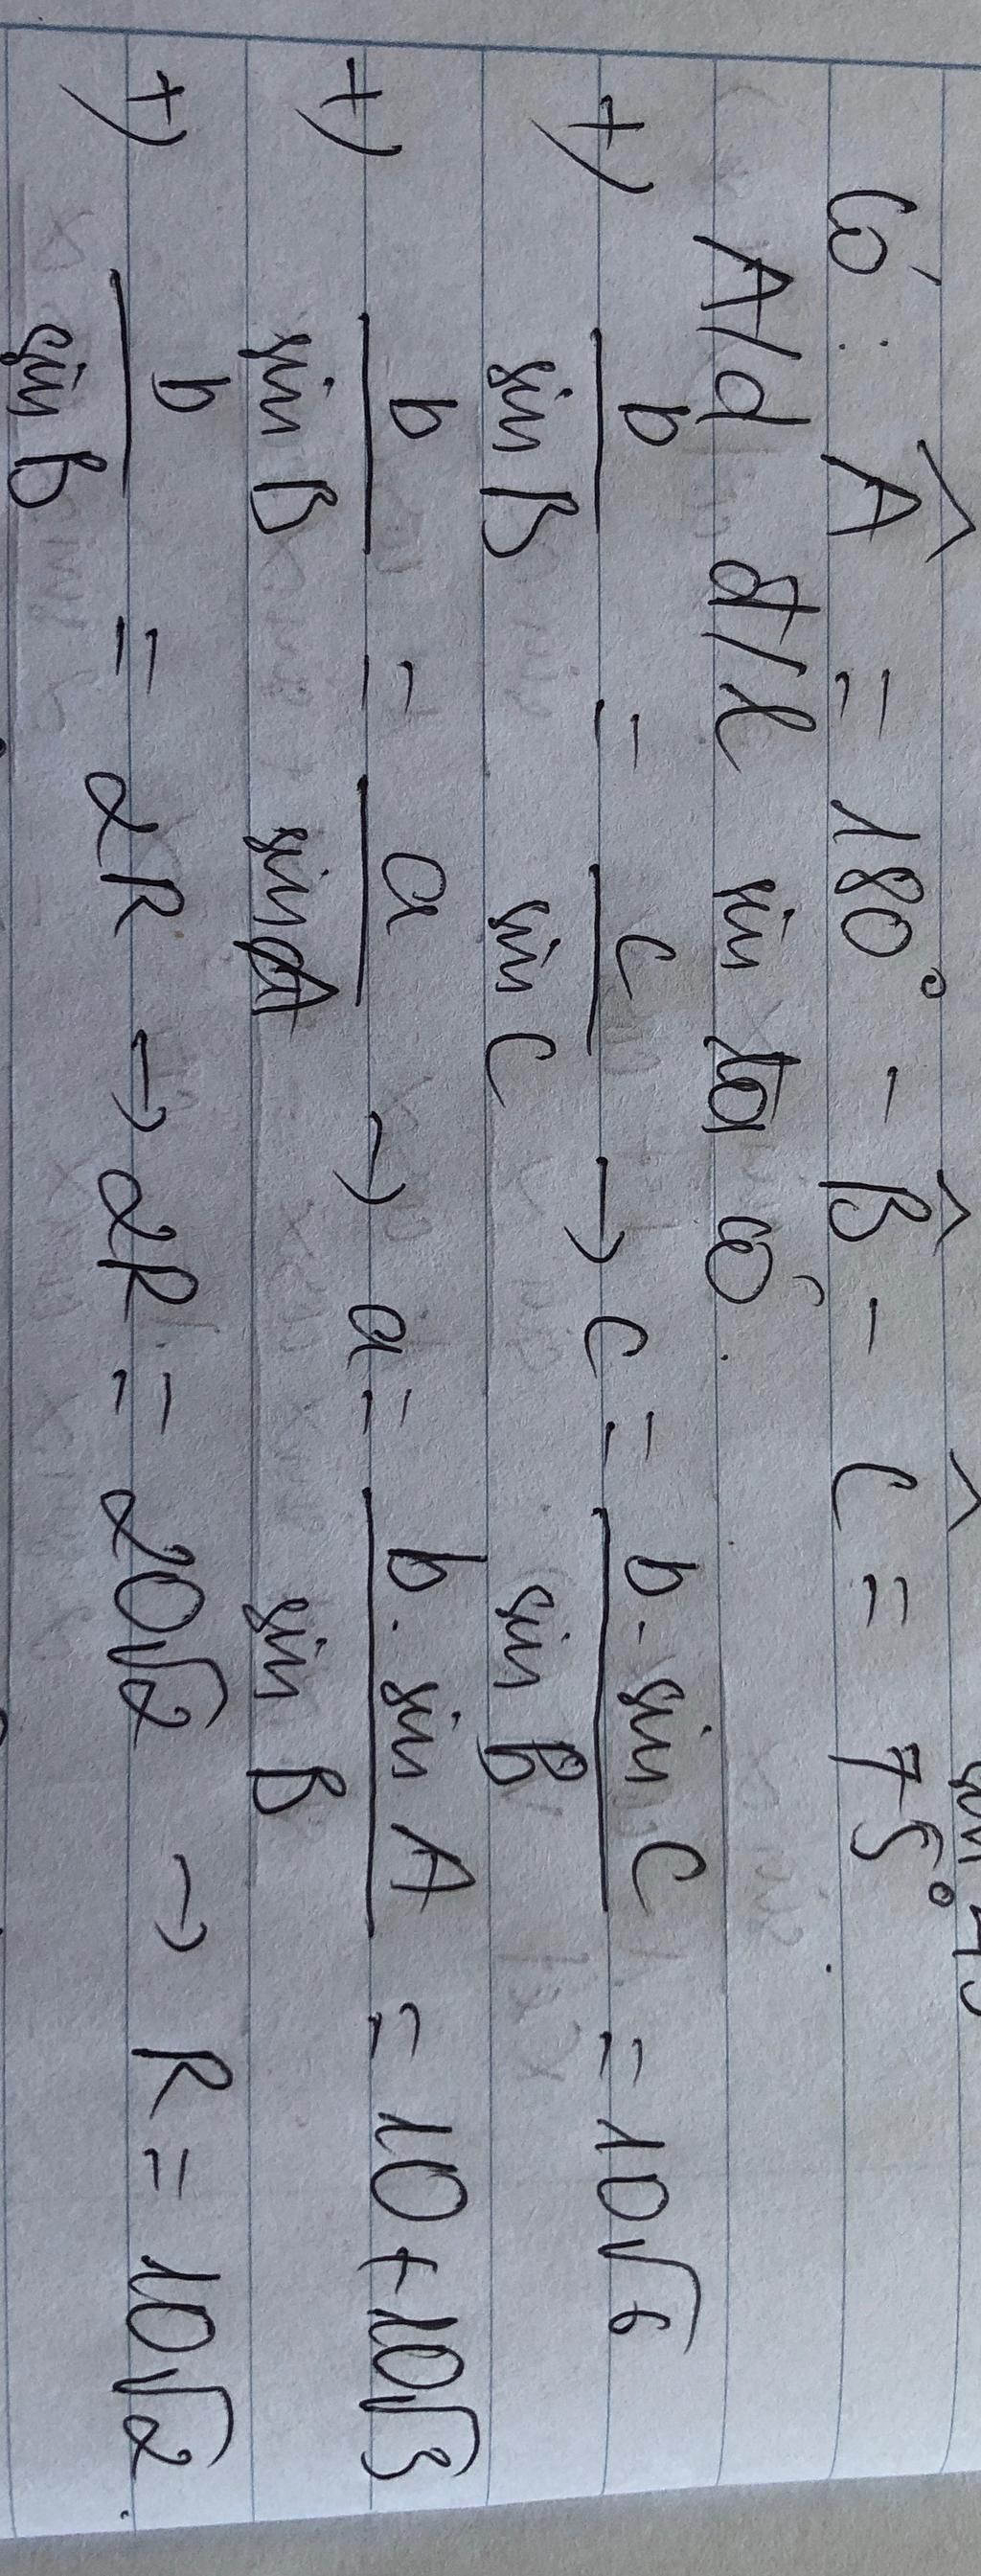 Có: Â = 180° - B̂ - Ĉ = 75°.
A/d đ/l sin ta có
+) b/sin B = c/sin C → c = b.sin C/sin B = 10√6
+) b/sin B = a/sin A → a = b.sin A/sin B = 10 + 10√3
+) b/sin B = 2R → 2R = 20√2 → R = 10√2.